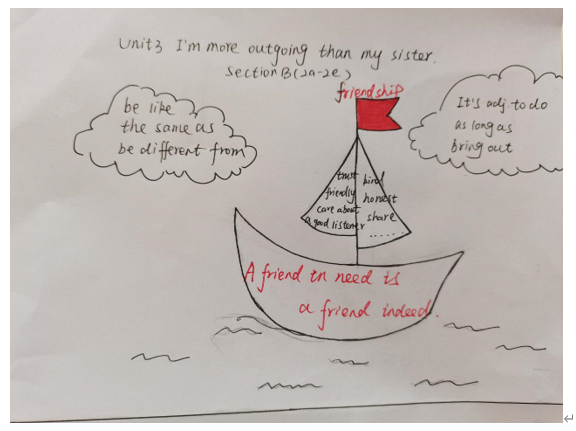 Unit3 I'm more outgoing than my sister.
Section B(2a-2e)
friendship
be like
the same as
be different from
It's adj. to do
as long as
bring out
trust
friendly
care about
a good listener
kind
honest
share
......
A friend in need is
a friend indeed.